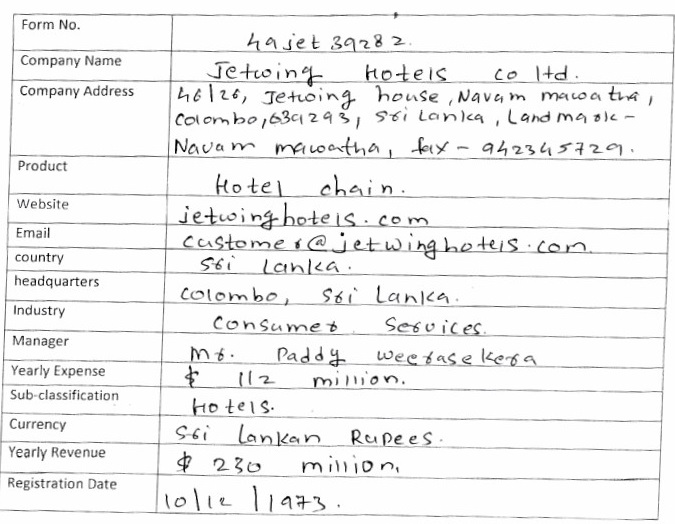 Form No.
hajet39282.
Company Name
Jetwing Hotels co ltd.
Company Address
46/26, Jetwing house, Navam mawatha,
Colombo, 639293, Sri Lanka, Landmark-
Navam mawatha, fax - 942345729.
Product
Hotel chain.
Website
jetwinghotels.com
Email
customer@jetwinghotels.com
country
Sri Lanka.
headquarters
Colombo, Sri Lanka.
Industry
Consumer Services.
Manager
Mr. Paddy Weerasekera
Yearly Expense
$ 112 million.
Sub-classification
Hotels.
Currency
Sri Lankan Rupees.
Yearly Revenue
$ 230 million.
Registration Date
10/12/1973.